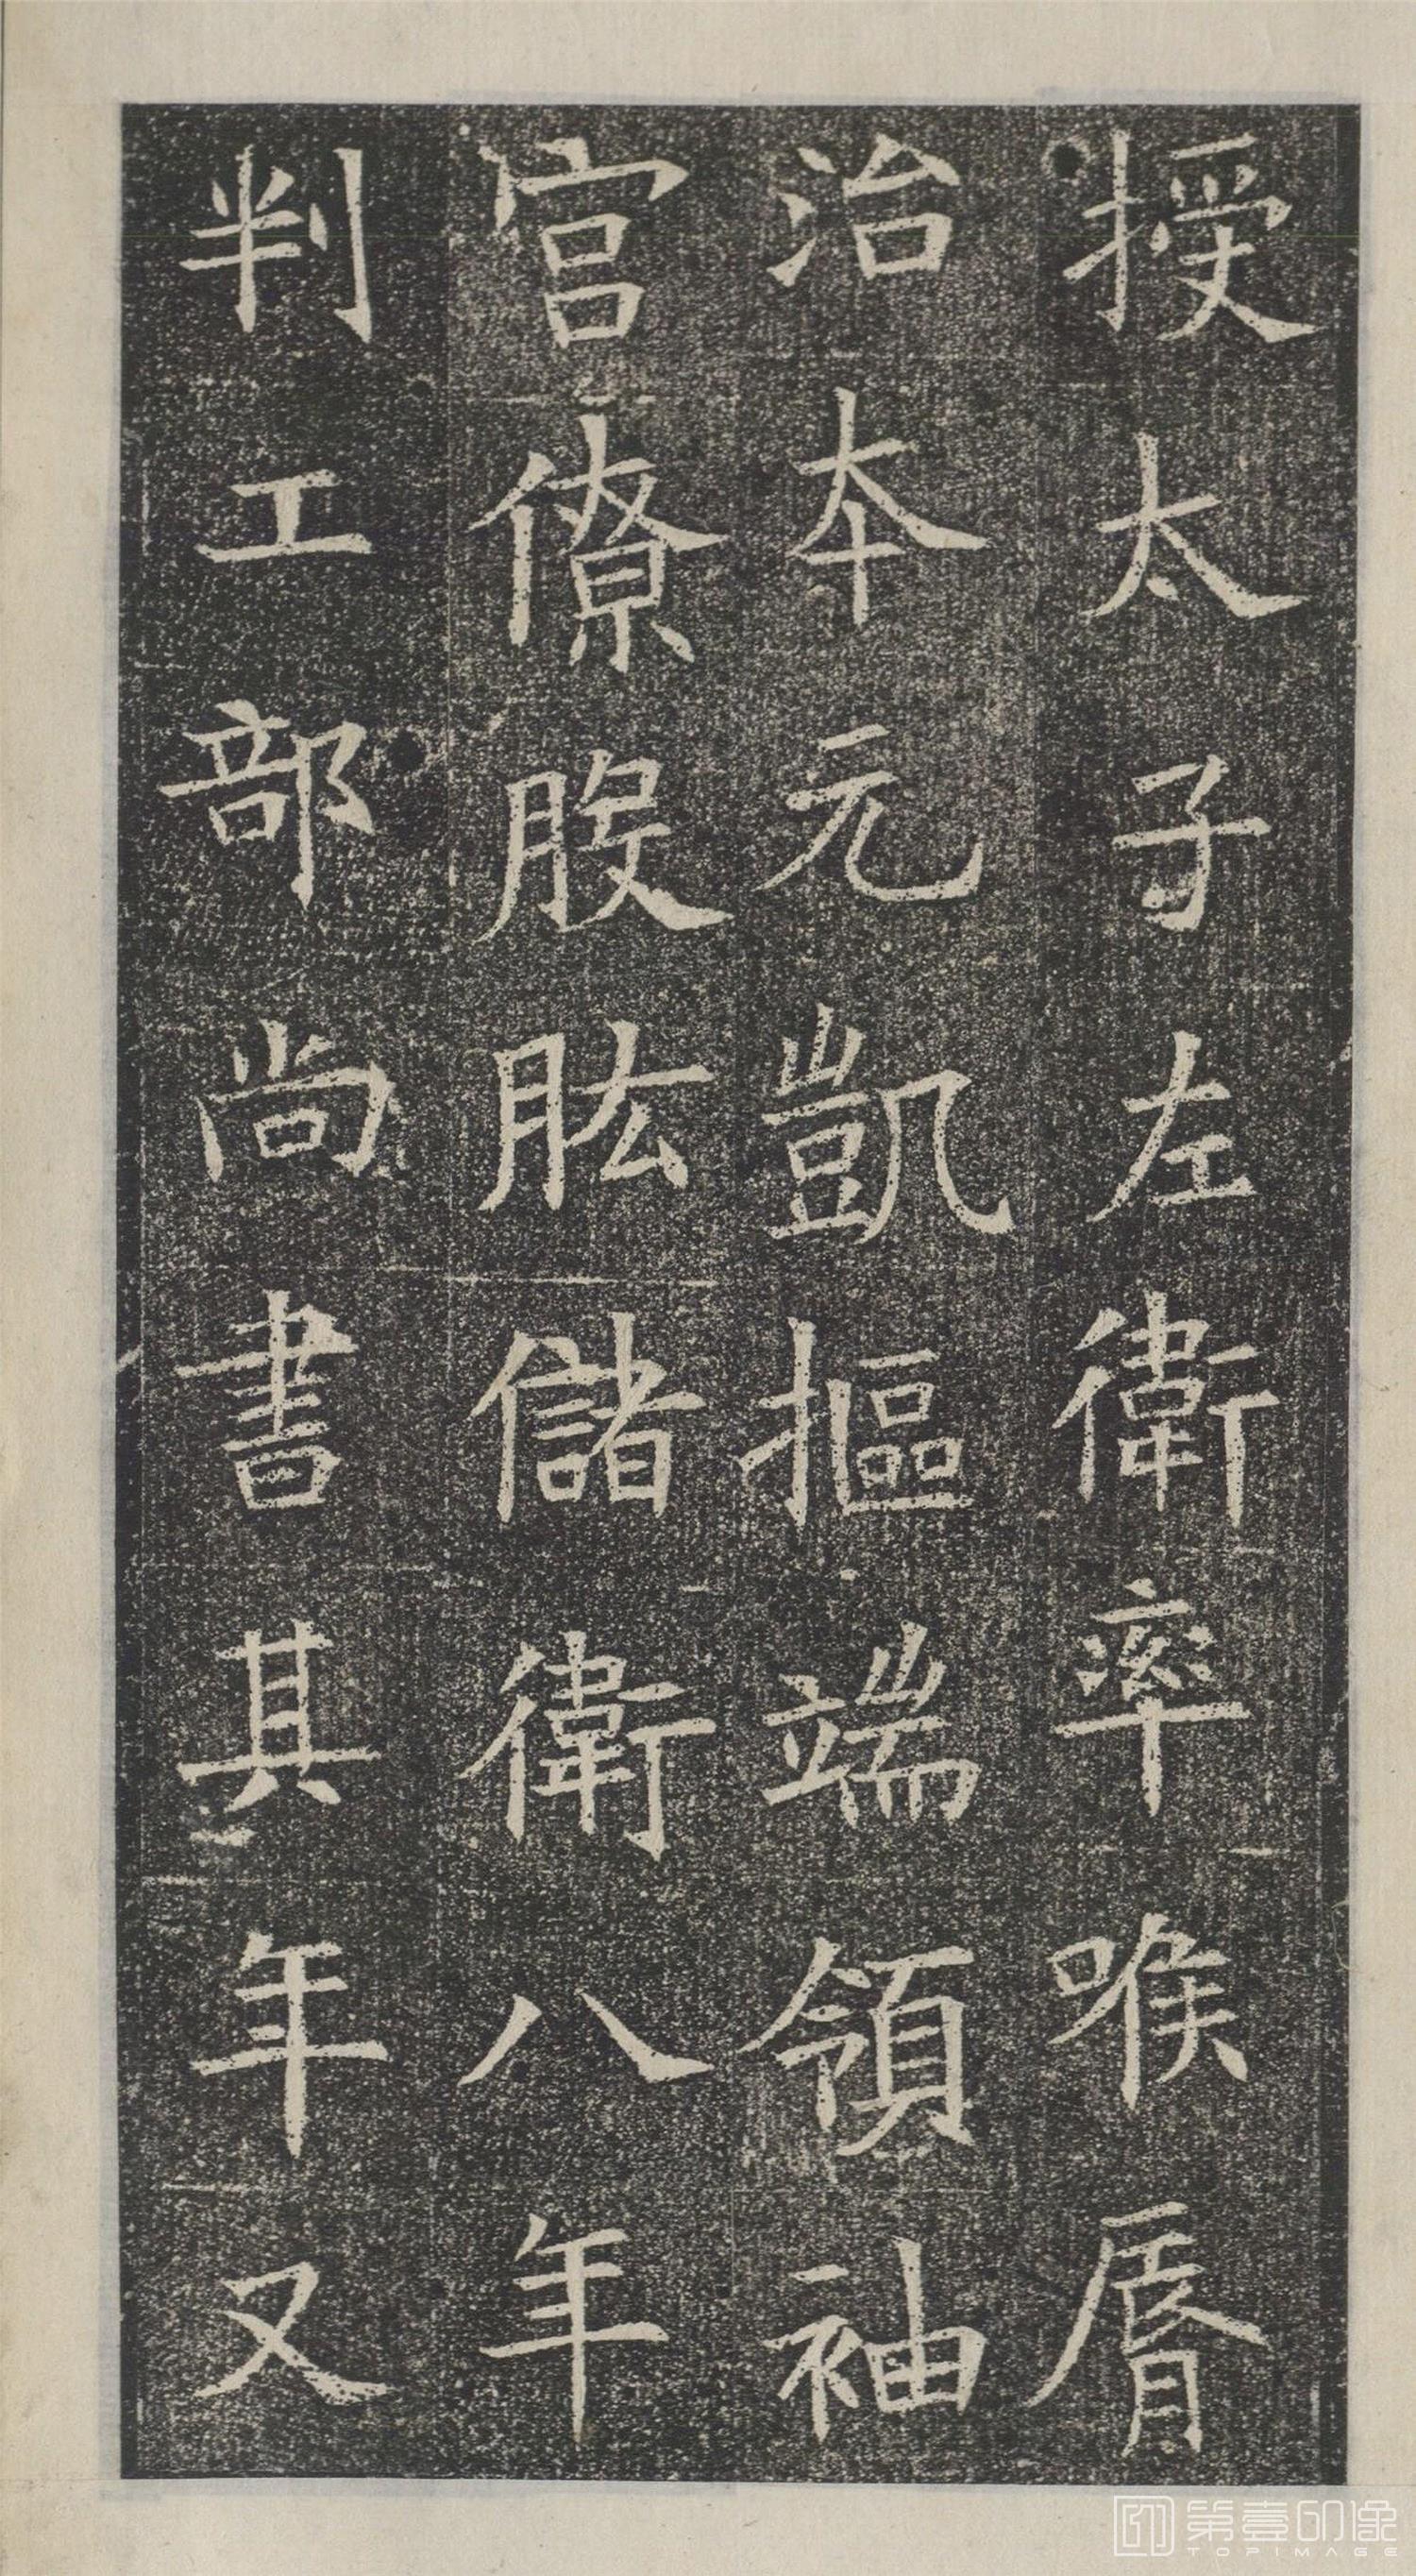 授太子左衛率喉脣
治本元凱摳端領袖
宮僚股肱儲衛八年
判工部尚書其年又
第壹印像
TOPIMAGE